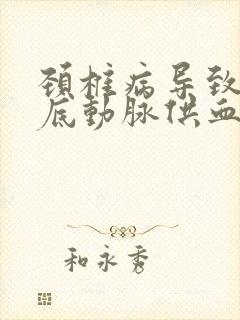 颈椎病导致
底動脉供血
和永秀